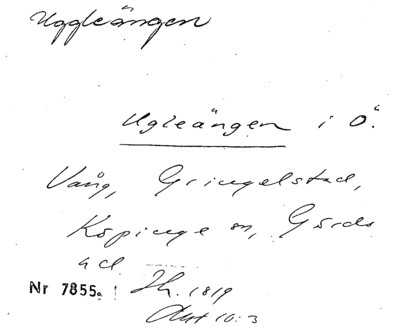 Uggleängen
Ugleängen i Ö.
Vång, Gringelstad,
Köpinge sn, Gärds
hd.
Nr 7855a. Jh. 1819
Akt 10:3